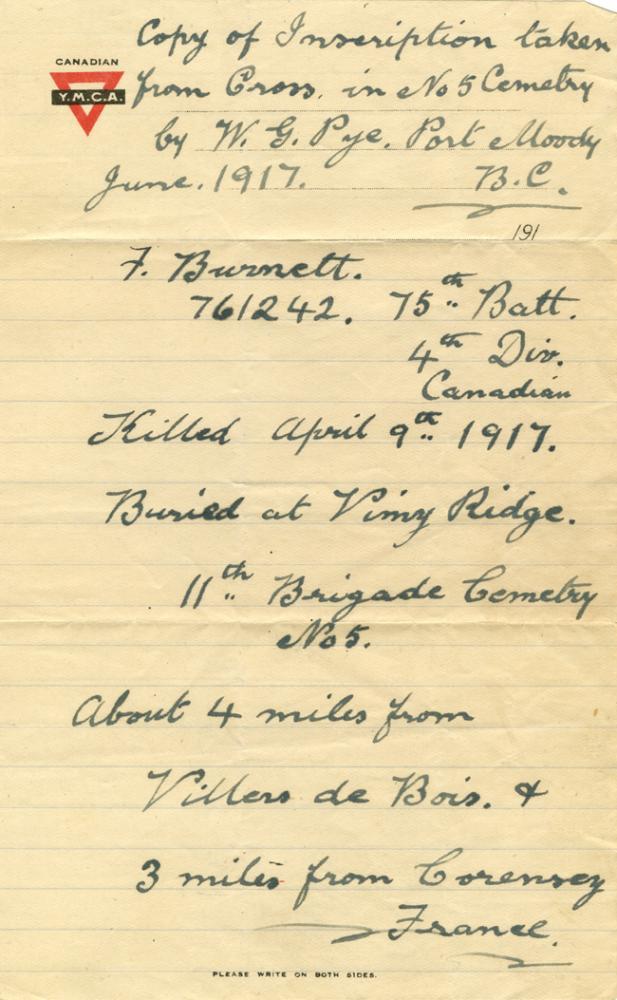 Copy of Inscription taken
CANADIAN
Y.M.C.A.
from Cross. in No 5 Cemetry
by W. G. Pye. Port Moody
June. 1917. B.C.
191
F. Burnett.
761242. 75th Batt.
4th Div.
Canadian
Killed April 9th 1917.
Buried at Vimy Ridge.
11th Brigade Cemetry
No 5.
About 4 miles from
Villers de Bois. &
3 miles from Corensey
France.
PLEASE WRITE ON BOTH SIDES.